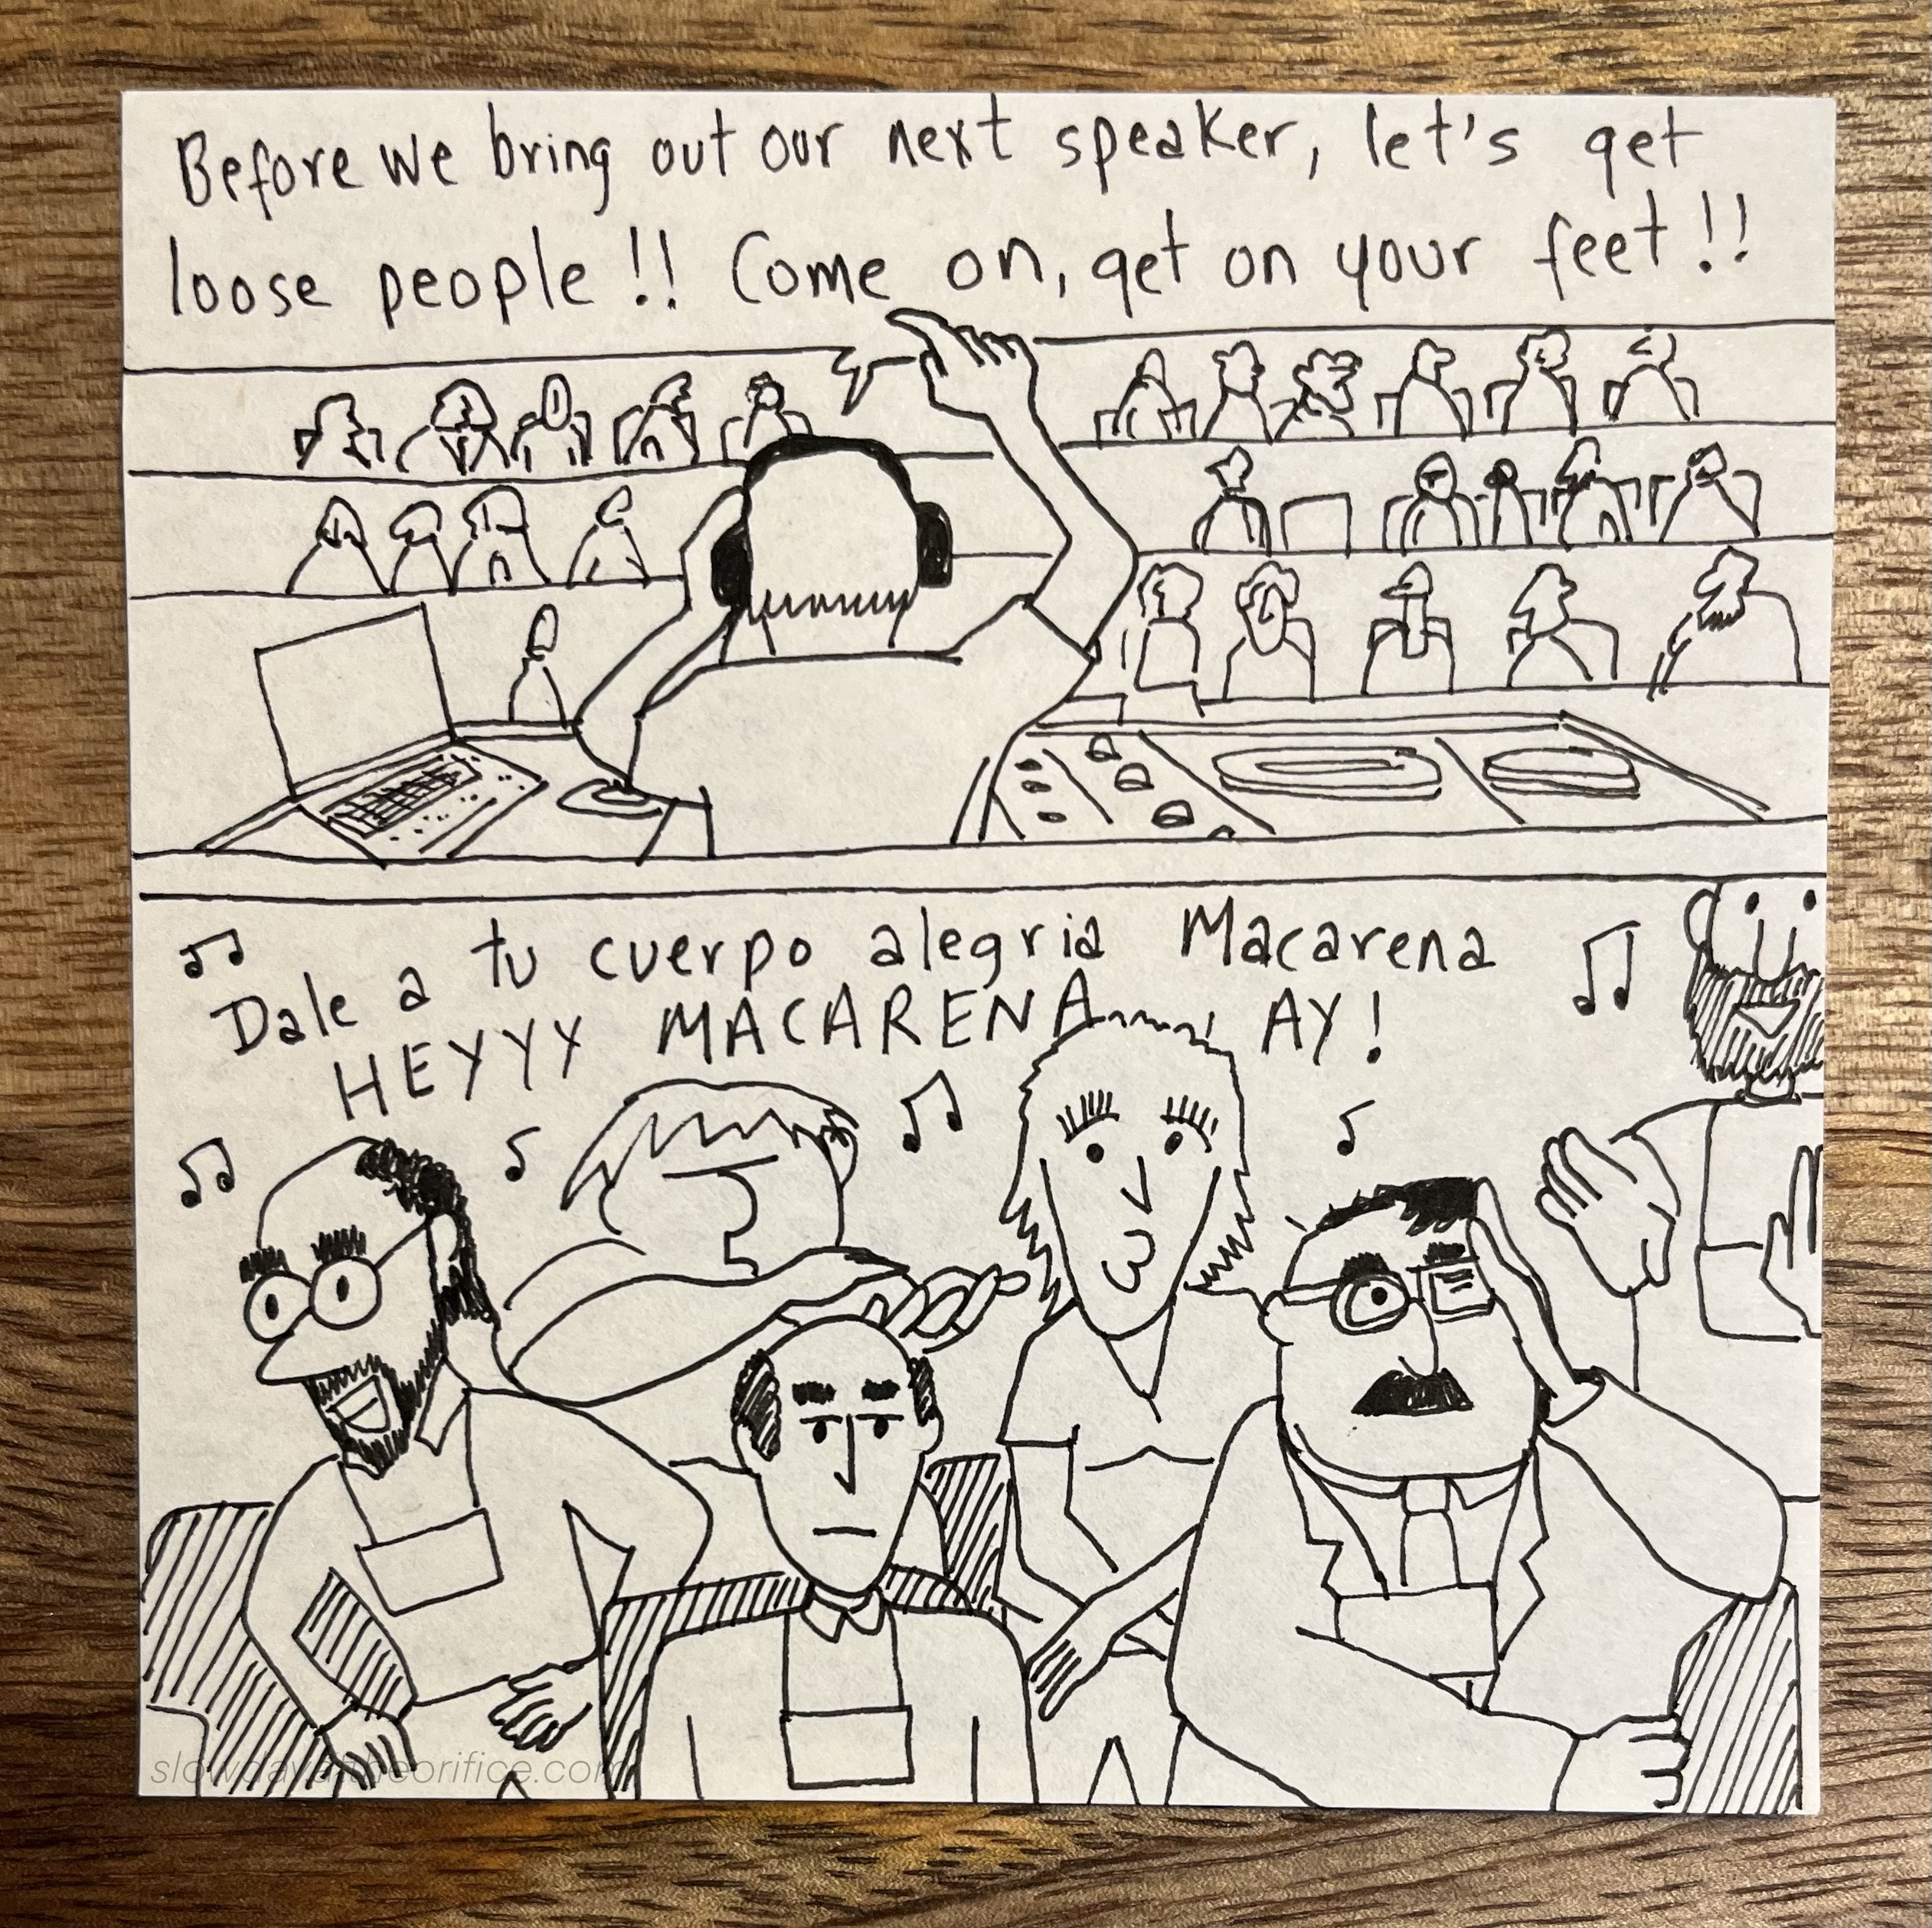 Before we bring out our next speaker, let's get
loose people!! Come on, get on your feet!!
Dale a tu cuerpo alegria Macarena
HEYYY MACARENA~~~~ AY!
slowdayattheorifice.com